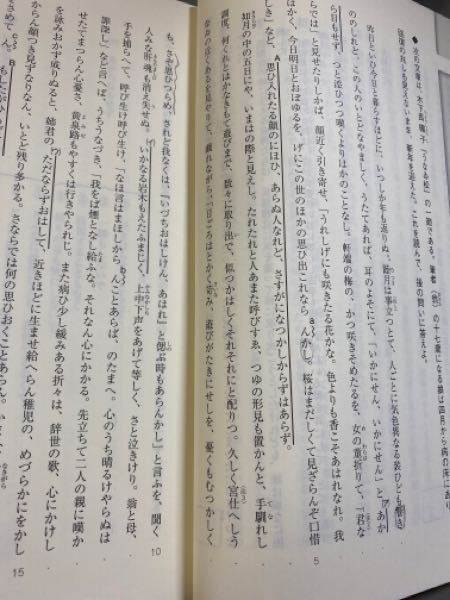 次の文章は、木下長嘯子「うなゐ松」の一節である。筆者(翁)の十七歳になる娘は四月から病の床にあり、
回復の兆しも見えないまま、新年を迎えた。これを読んで、後の問いに答えよ。
昨日といひ今日と暮らすほどに、いつしか年も返りぬ。睦月は事立つとて、人ごとに気色異なる装ひども響き
ののしれど、この人のいとどなやましく、うたてあれば、耳のよそにて、「いかにせん、いかにせん」と、あか
ら目もせず、つと添ひつつ嘆くよりほかのことなし。軒端の梅の、かつ咲きそめたるを、女の童折りて、「君な
らでは」と見せたりしかば、顔近く引き寄せ、「うれしげにも咲きたる花かな。色よりも香こそあはれなれ。我
はかく、今日明日とおぼゆるを、げにこの世のほかの思ひ出これならんかし。桜はまだしくて見ざらんぞ口惜
しき」など、思ひ入れたる顔のにほひ、あらぬ人なれど、さすがになつかしからずはあらず。
如月の中の五日にや、いまはの際と見えし。たれたれと人あまた呼びすゑ、つゆの形見も置かんと、手馴れし
調度、何くれとはかなきもて遊びまで、数々に取り出で、似つかはしくそれぞれにと配りつ。久しく宮仕へしう
なゐの近くあるを見やりて、戯れながら、「日ごろはとかく否み、遊びがたきにせしを、憂くもむつかしく
も、さや思ひつらめ、されど我なくは、『いづちおはしけん、あはれ』と偲ぶ時もあらんかし」と言ふを、聞く
人みな肝魂も消え失せぬ。いかなる岩木もえたふまじく、上中下声をあげて等しく、さと泣きけり。翁と母、
手を捕らへて、呼び生け呼び生け、「なほ言はまほしからんことあらば、のたまへ。心のうち晴るけやらぬは
罪深し」など言へば、うちうなづき、「我をば煙となし給ふな。それなん心にかかる。先立ちて二人の親に嘆か
せたてまつらん心憂さ、黄泉路もやすくは行きやられじ。また病ひ少し緩みある折々は、辞世の歌、心にかけし
を詠みおかず成りぬると、嫗君の、ただならずおはして、近きほどに生ませ給へらん稚児の、めづらかにをかし
からん顔つき見ずなりなん、いとど残り多かる。さならでは何の思ひおくことあらん。